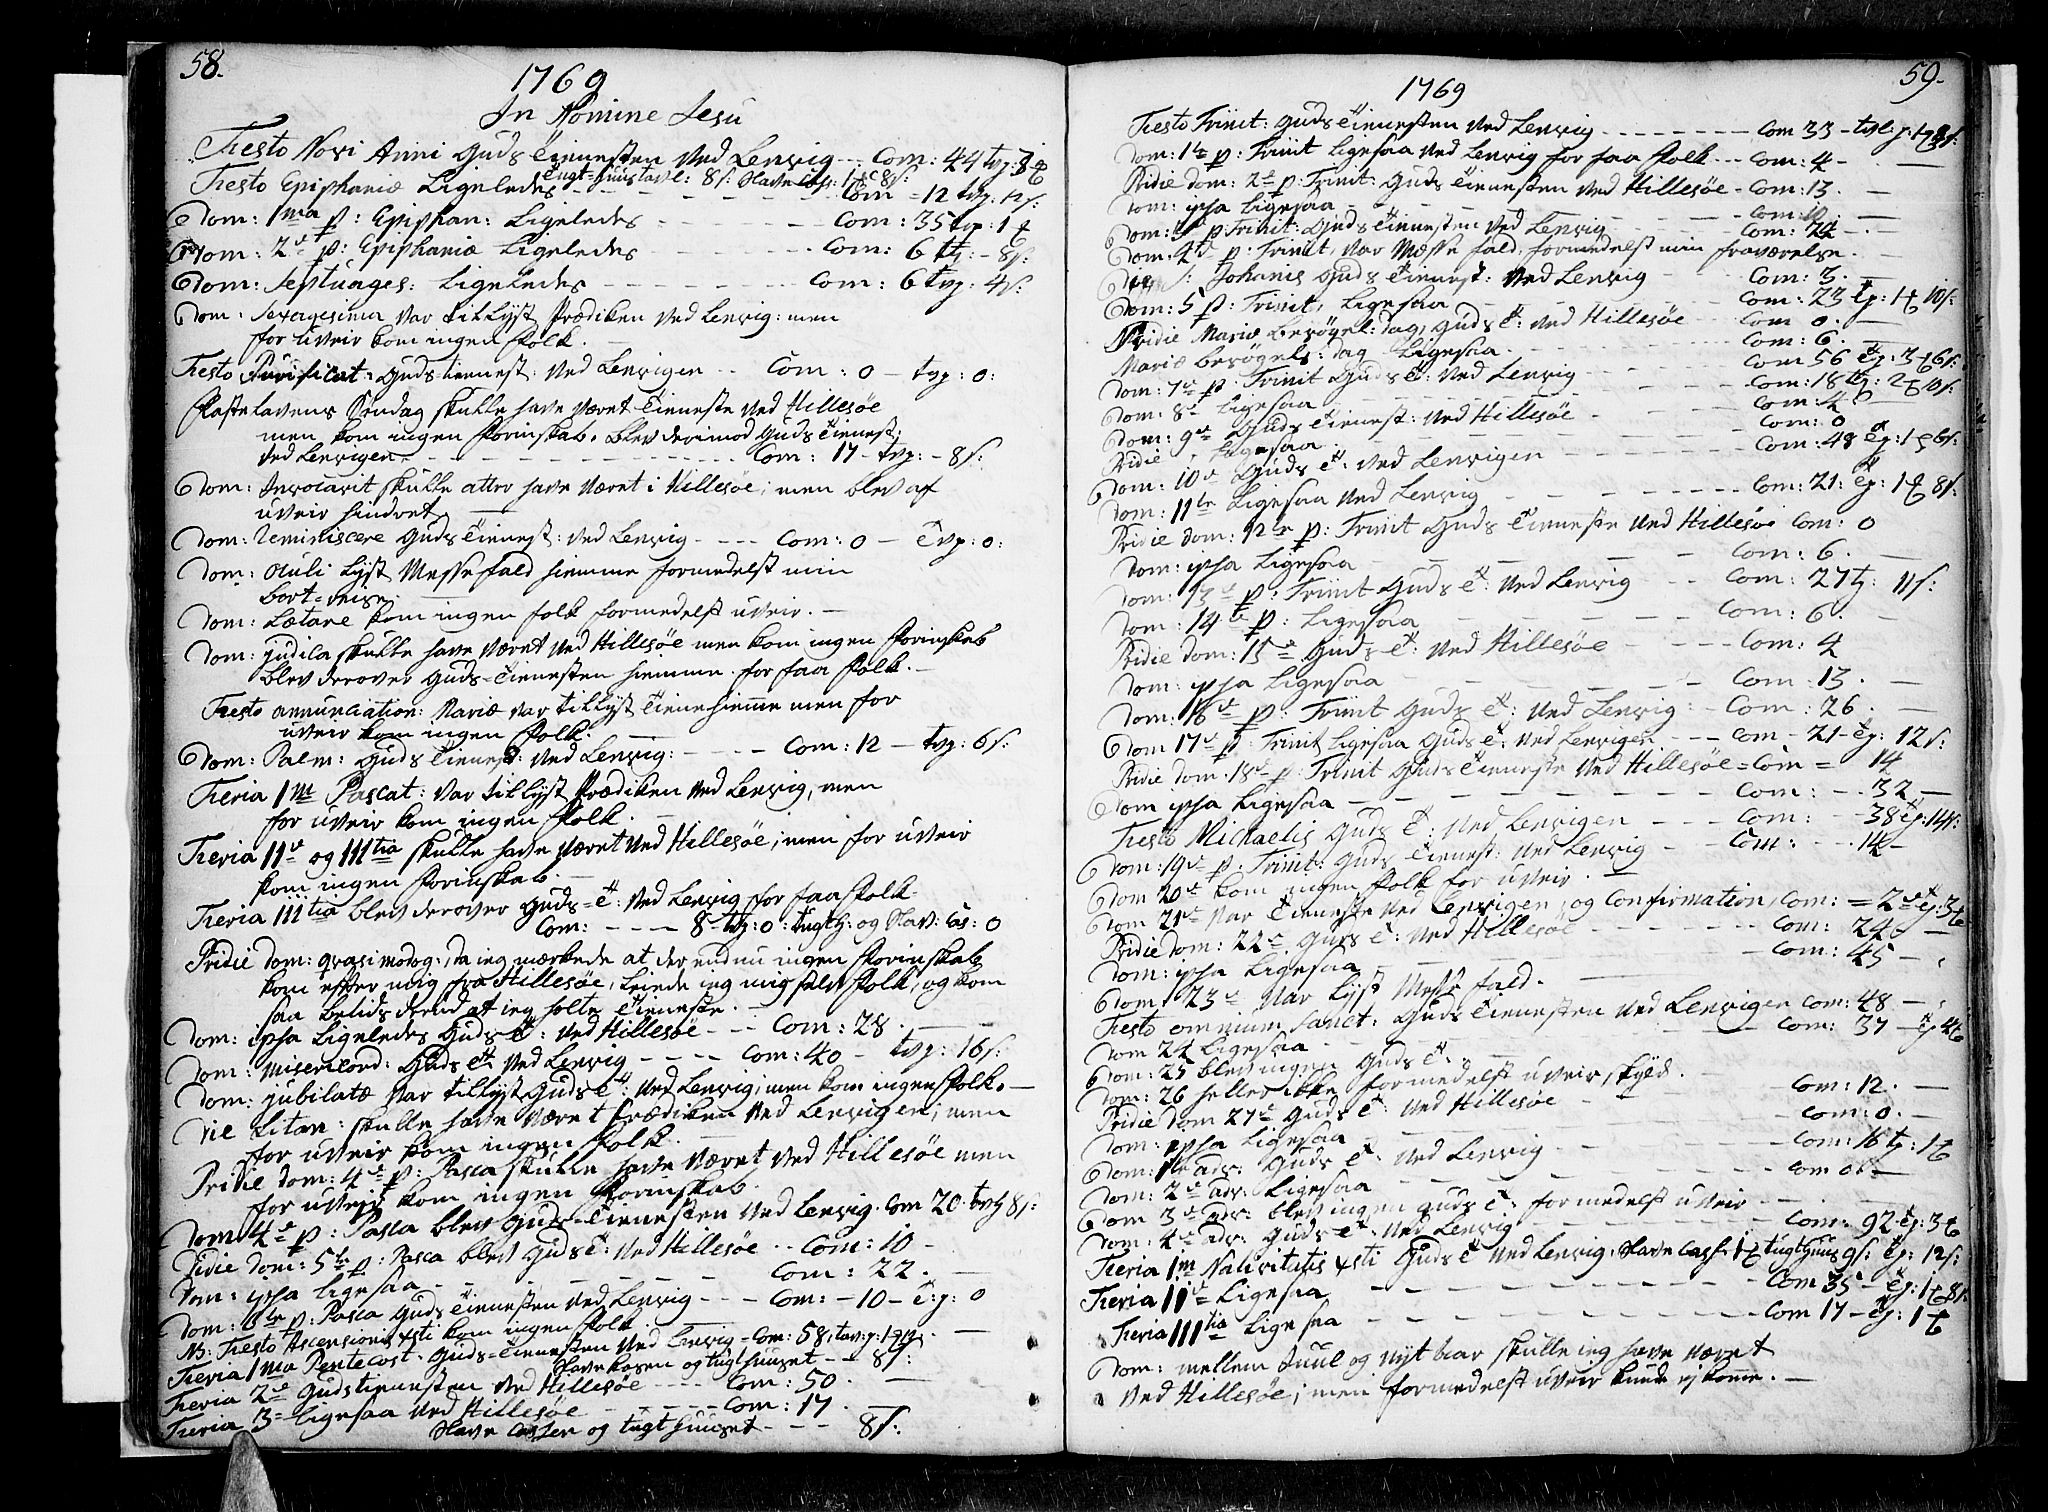 58.
1769
In Nomine Jesu
Festo Novi Anni Guds Tienesten ved Lenvig - - - Com: 44 tvg: 3
Tugt-huustavl: 8 s: Slave Cass:
Festo Epiphaniæ Ligeledes - - - Com = 12 tvg: 12 s:
Dom: 1ma p: Epiphan: Ligeledes - - - Com: 35 tvg: 1
Dom: 2de p: Epiphaniæ Ligeledes - - - Com: 6 tz: - 8 s:
Dom: Septuages: Ligeledes - - - Com: 6 tvg: 4 s:
Dom: Sexagesima var tillyst Prædiken ved Lenvig: men
for uveir kom ingen folk.
Festo Purificat: Guds tienest: ved Lenvigen - - Com: 0 - tvg: 0:
Fastelavens Søndag skulle have været Tieneste ved Hillesøe
men kom ingen forinskab. blev derimod Guds Tienest:
ved Lenvigen. - - - Com: 17 - tvg: - 8 s:
Dom: Invocavit skulle atter have været i Hillesøe; men blev af
uveir hindret
Dom: Reminiscere Guds Tienest: ved Lenvig - - - Com: 0 - Tvg: 0:
Dom: Oculi Lyst Messefald hiemme formedelst min
bort-reise.
Dom: Lætare kom ingen folk formedelst uveir. -
Dom: judica skulle have været ved Hillesøe men kom ingen forinskab
blev derover Guds-Tienesten hiemme for faa folk. -
Festo annunciation: Mariæ var tillyst Tiene hiemme men for
uveir kom ingen folk.
Dom: Palm: Guds Tienest: ved Lenvig: - - - Com: 12 - tvg: 6 s:
Feria 1m Pascat: var tillyst Prædiken ved Lenvig, men
for uveir kom ingen folk.
Feria IIde og IIItia skulle have været ved Hillesøe; men for uveir
kom ingen forinskab.
Feria IIItia blev derover Guds=T: ved Lenvig for faa folk.
Com: - - - 8 - tvg: 0: tugth: og Slav: Cas: 0
Pridie dom: qvasimodog:, da ieg mærkede at der endnu ingen forinskab
kom efter mig fra Hillesøe, Leiede ieg mig selv folk, og kom
saa betids derud at ieg holte Tieneste.
Dom: ipsa Ligeledes Guds T: ved Hillesøe - - - Com: 28.
Dom: misericord: Guds T: ved Lenvig - - - Com: 40 - tvg: 16 s:
Dom: jubilatæ var tillyst Guds T: ved Lenvig; men kom ingen folk. -
Die Litan: skulle have været Prædiken ved Lenvigen; men
for uveir kom ingen folk.
Pridie dom: 4de p: Pasca skulle have været ved Hillesøe men
for uveir kom ingen forinskab.
Dom 4de p: Pasca blev Guds-Tienesten ved Lenvig. Com 20. tvg 8 s:
Pridie dom: 5te p: Pasca blev Guds T: ved Hillesøe - - Com: 10 -
Dom: ipsa Ligesaa - - - Com: 22. -
Dom: 6te p: Pasca Guds Tienesten ved Lenvig - - - Com: - 10 - T: g: 0
NB: Festo Ascensionis xsti kom ingen folk. -
Feria 1ma Pentecost. Guds=Tienesten ved Lenvig - Com: 58, tav:
Slave kasen og tugthuuset - - 8 s:
Feria 2de Gudstienesten ved Hillesøe - - - Com: 50.
Feria 3= Ligesaa ved Hillesøe - - - Com: 17.
Slave Cassen og tugthuuset - - - 8 s:
59.
1769
Festo Trinit: Guds Tienesten ved Lenvig - - - Com 33 - tvl
Dom: 1te p: Trinit Ligesaa ved Lenvig for faa folk - - Com: 4 -
Pridie dom: 2de p: Trinit: Guds Tienesten ved Hillesøe - Com: 13. -
Dom: ipsa Ligesaa
Dom: 3 p Trinit: Guds Tienesten ved Lenvig - - - Com: 24 -
Dom: 4de p: Trinit, var Messe fald, formedelst min fraværelse.
Johanis Guds Tienest: ved Lenvig - - Com: 3. -
Dom: 5 p: Trinit, Ligesaa - - - Com: 23 tg: 1 10 s:
Pridie Mariæ besøgel: dag, Guds T: ved Hillesøe - - Com 0. -
Mariæ besøgels: dag Ligesaa. - - - Com: 6. -
Dom: 7de p: Trinit Guds T: ved Lenvig - - - Com 56 tg: 3 6 s:
Dom: 8de Ligesaa - - - Com: 18 tg: 2 10 s:
Dom: 9de Guds Tienest: ved Hillesøe - - - Com: 4
Pridie Ligesaa - - - Com: 0
Dom: 10de Guds T: ved Lenvigen - - - Com: 48 tg: 1 6 s:
Dom: 11te Ligesaa ved Lenvig - - - Com: 21: tg: 1 8 s:
Pridie dom: 12te p: Trinit Guds Tieneste ved Hillesøe Com: 0
Dom: ipsa Ligesaa - - - Com: 6. -
Dom: 13de p: Trinit Guds T: ved Lenvig - - Com: 27 t: 11 s:
Dom: 14de p: Ligesaa - - - Com: 6. -
Pridie dom: 15de Guds-T: ved Hillesøe - - - Com: 4
Dom: ipsa Ligesaa - - - Com: 13. -
Dom: 16de p: Trinit Guds T: ved Lenvig - Com: 26. -
Dom 17de p: Trinit Ligesaa Guds T: ved Lenvigen - - - Com - 21 - tg: 12 s:
Pridie dom: 18de p: Trinit Guds Tieneste ved Hillesøe = Com = 14
Dom ipsa Ligesaa - - - Com: - . 32 -
Festo Michaelis Guds T: ved Lenvigen - - - Com: - - 38 tg: 14 s:
Dom: 19de p: Trinit: Guds Tienest: ved Lenvig - - Com: - - . 14 -
Dom 20de kom ingen folk for uveir. -
Dom 21de var Tieneste ved Lenvigen, og Confirmation, Com: = 2
Pridie dom: 22de Guds T: ved Hillesøe - - - Com: 24 -
Dom: ipsa Ligesaa - - - Com: 45 -
Dom: 23de var Lyst Messe fald. -
Festo omnium Sanct: Guds Tienesten ved Lenvigen Com: 48 - .
Dom 24 Ligesaa - - - Com: 37 - tg 4
Dom: 25 blev ingen Guds T: -
Dom: 26 heller ikke formedelst uveir, skyld.
Pridie dom 27de Guds T: ved Hillesøe - - - Com: 12. -
Dom: ipsa Ligesaa - - - Com: 0. -
Dom: 1te adv: Guds T: ved Lenvig - - - Com: 16 t: 1
Dom: 2de adv: Ligesaa - - - Com
Dom 3de adv: blev ingen Guds T: formedelst uveir - - - .
Dom: 4de adv: Guds-T: ved Lenvig - - - Com: 92 tg: 3
Feria 1m Nativitatis xsti Guds T: ved Lenvig. Slave Cass: 1 tugthuus 9 s: tg: 12 s:
Feria IIde Ligesaa - - - Com 35 - tg: 1 8 s:
Feria IIItia Ligesaa - - - Com 17 - tg: 1
Dom: mellem Juul og Nyt aar skulle ieg have været
ved Hillesøe; men formedelst uveir kunde ej komme. -